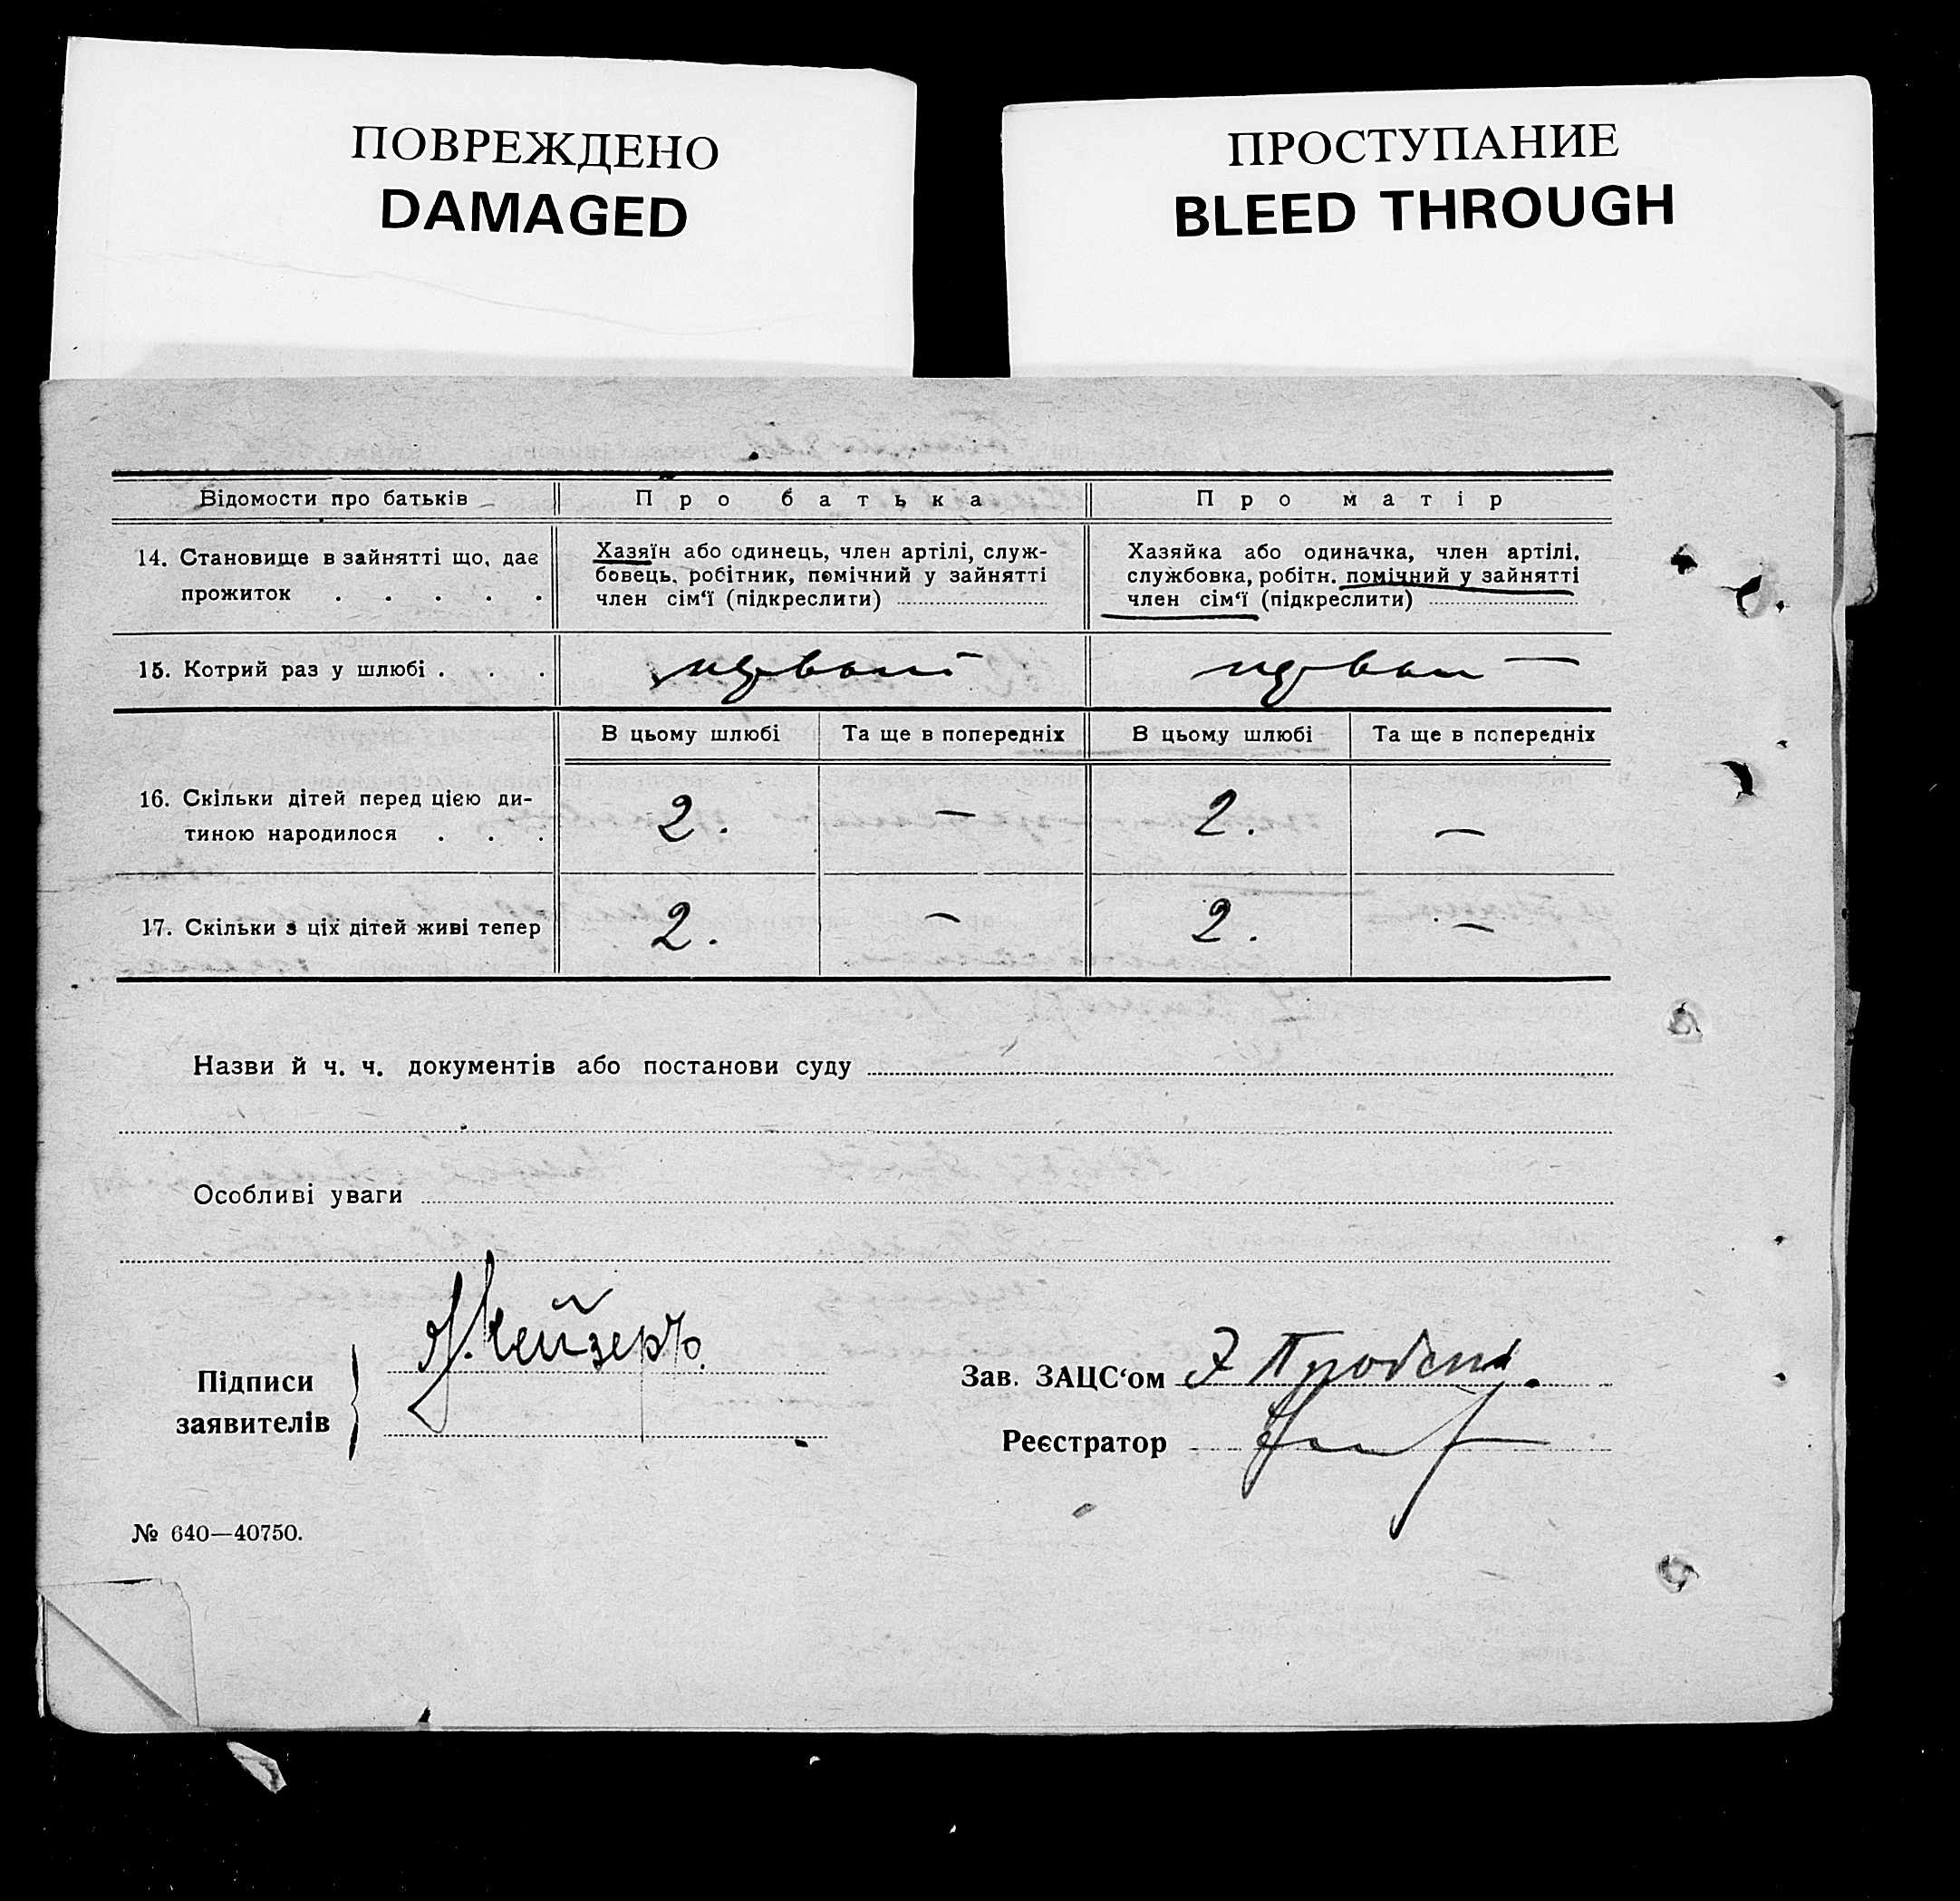 ПОВРЕЖДЕНО
DAMAGED
ПРОСТУПАНИЕ
BLEED THROUGH
Відомости про батьків
Про батька
Про матір
14. Становище в зайнятті що, дає
прожиток . . . . .
Хазяїн або одинець, член артілі, служ-
бовець, робітник, помічний у зайнятті
член сім‘ї (підкреслити)
Хазяйка або одиначка, член артілі,
службовка, робітн. помічний у зайнятті
член сім‘ї (підкреслити)
15. Котрий раз у шлюбі . . .
В цьому шлюбі
Та ще в попередніх
В цьому шлюбі
Та ще в попередніх
16. Скільки дітей перед цією ди-
тиною народилося . . .
2. — 2. —
17. Скільки з ціх дітей живі тепер
2. — 2. —
Назви й ч. ч. документів або постанови суду
Особливі уваги
Підписи
заявителів
Кейзеръ.
Зав. ЗАЦС‘ом
Реєстратор
№ 640—40750.